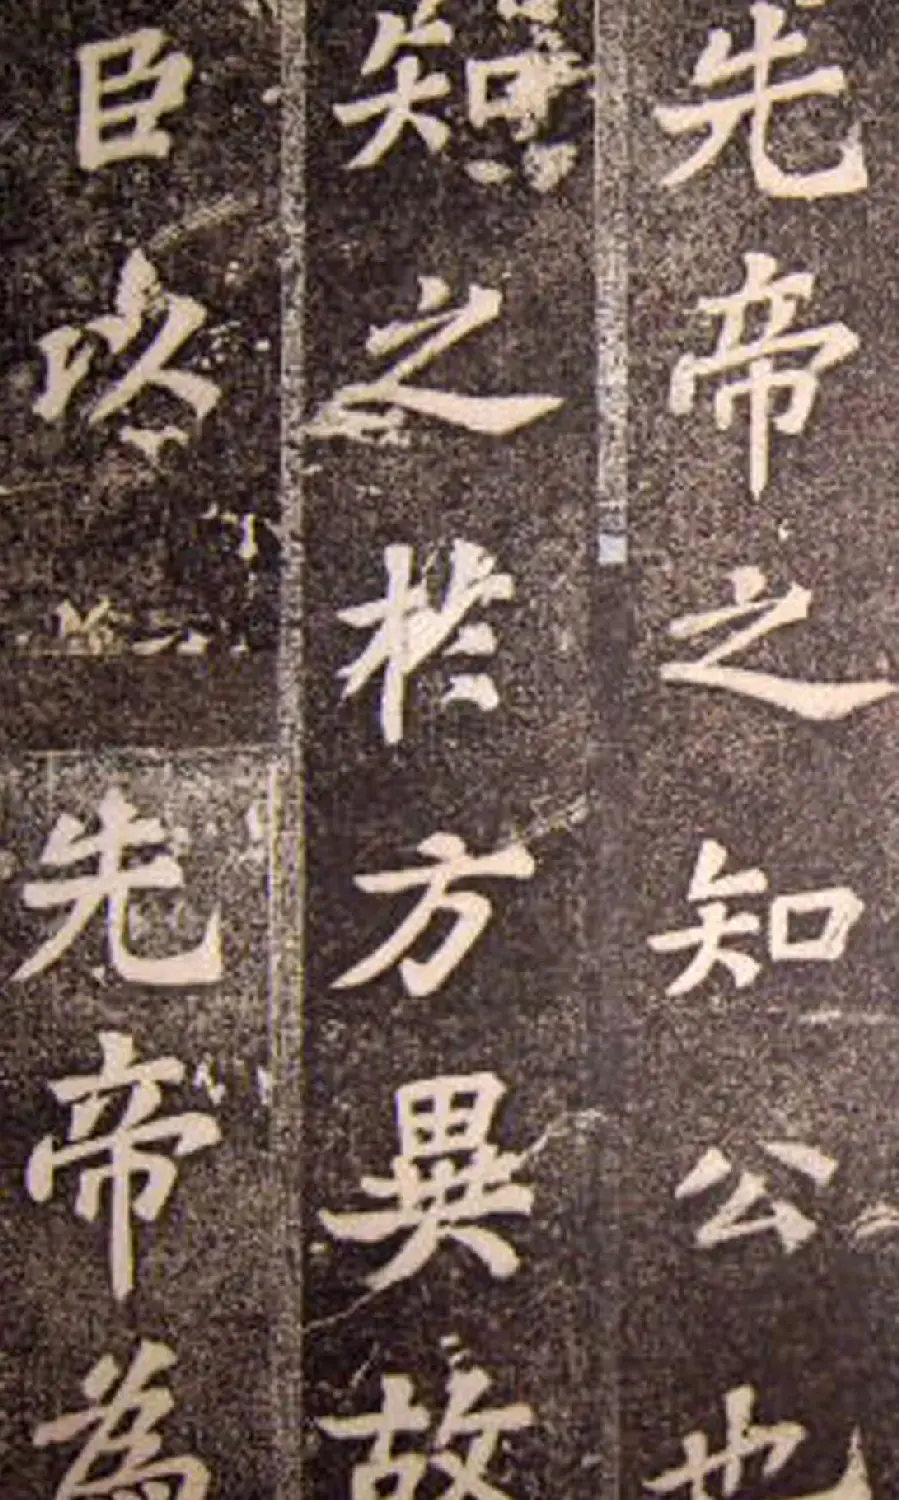 先帝之知公也
知之於方異故
臣以先帝為